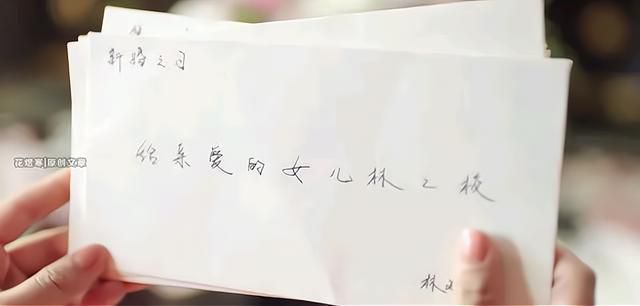 新婚之日
花煜寒|原创文章
给亲爱的女儿林之校
林